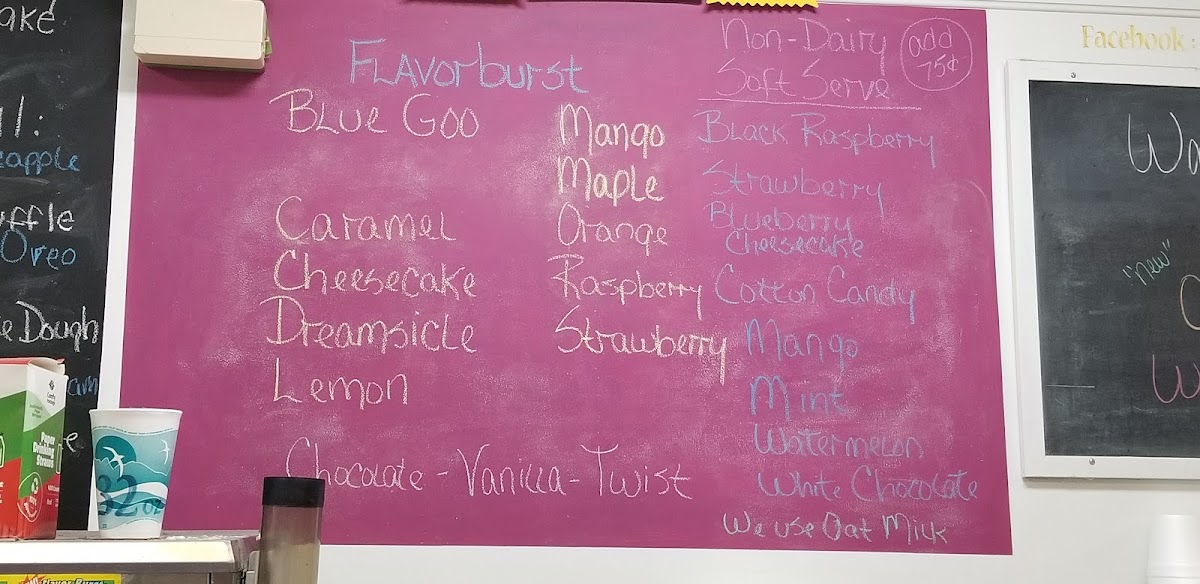 Flavorburst
Blue Goo
Caramel
Cheesecake
Dreamsicle
Lemon
Mango
Maple
Orange
Raspberry
Strawberry
Chocolate - Vanilla - Twist
Non-Dairy
Soft Serve
add
75¢
Black Raspberry
Strawberry
Blueberry
Cheesecake
Cotton Candy
Mango
Mint
Watermelon
White Chocolate
We use Oat Milk
Facebook:
"new"
Dough
Oreo
Paper
Drinking
Straws
32 oz